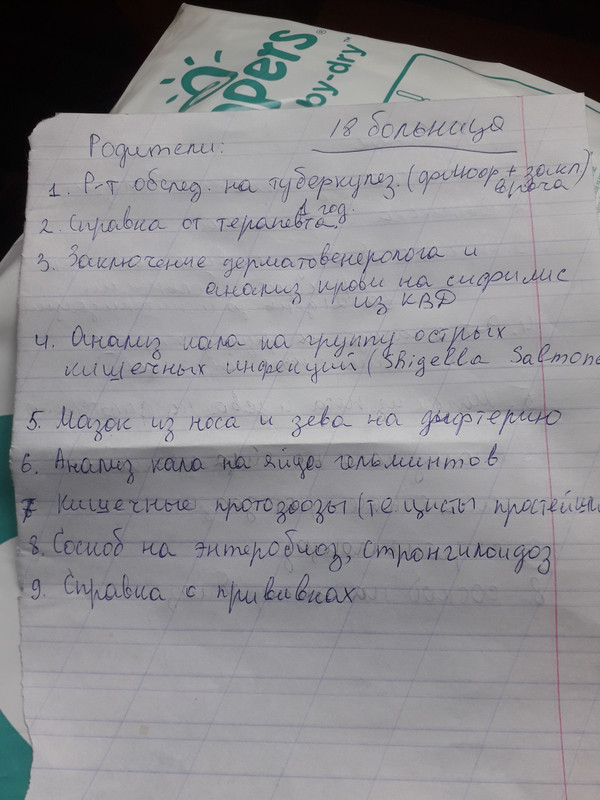 mpers
by-dry™
18 больница
Родители:
1. Р-т обслед. на туберкулез. (флюор. + закл
врача)
1 год.
2. Справка от терапевта
3. Заключение дерматовенеролога и
анализ крови на сифилис
из КВД
4. Анализ кала на группу острых
кишечных инфекций (Shigella Salmone
5. Мазок из носа и зева на дифтерию
6. Анализ кала на яйца гельминтов
7 Кишечные протозоозы (т.е. цисты простейши
8. Соскоб на энтеробиоз, стронгилоидоз
9. Справка о прививках